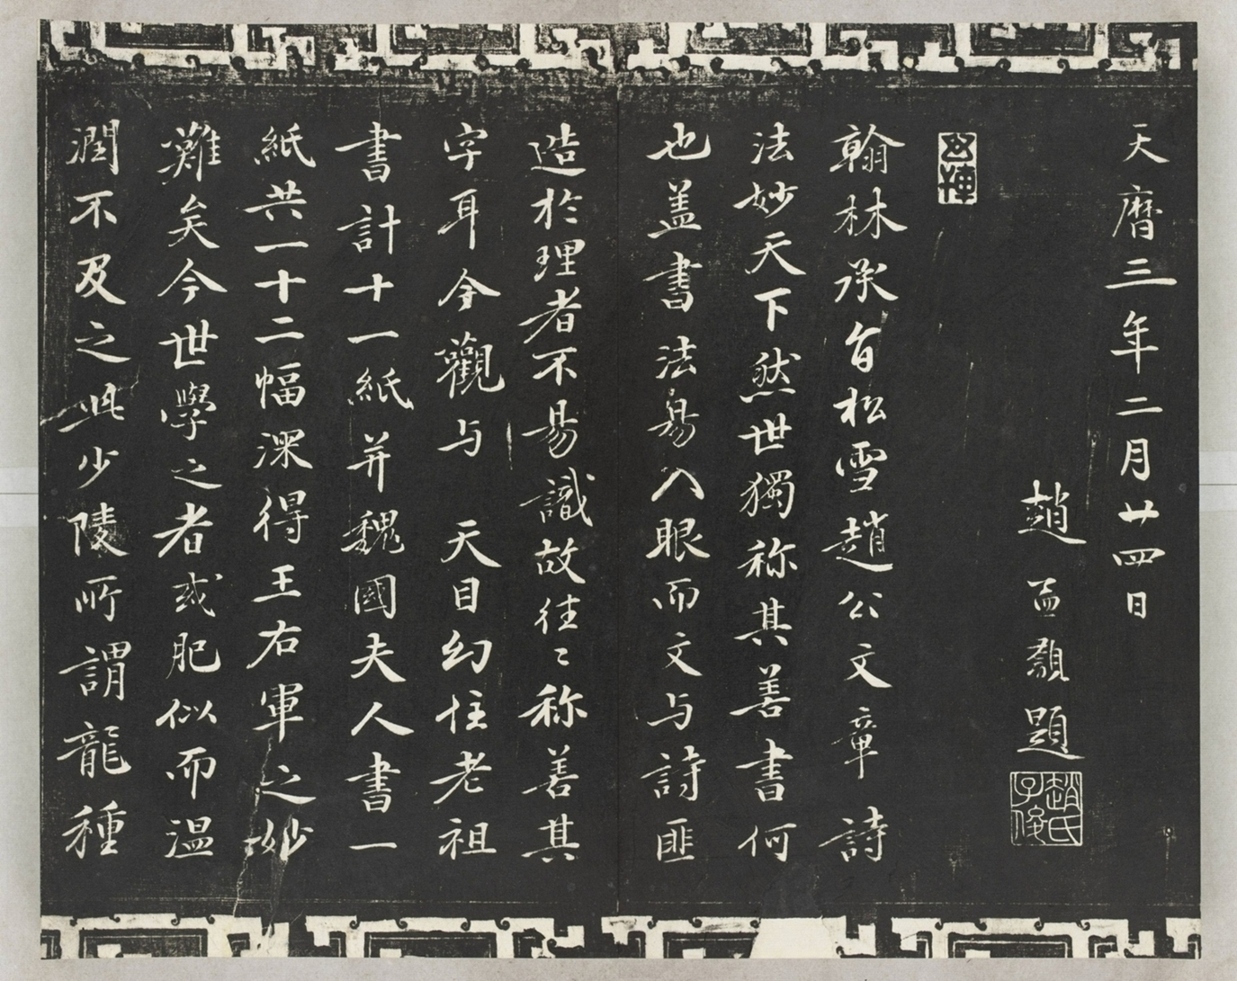 天曆三年二月廿四日
趙孟頫題
趙氏子俊
翰林承旨松雪趙公文章詩
法妙天下然世獨称其善書何
也盖書法易入眼而文与詩匪
造於理者不易識故往〻称善其
字耳今觀与 天目幻住老祖
書計十一紙并魏國夫人書一
紙共一十二幅深得王右軍之妙
難矣今世學之者或肥似而温
潤不及之此少陵所謂龍種